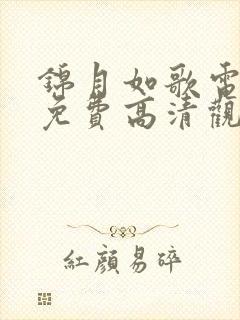 錦月如歌電
免費高清觀
紅顏易碎